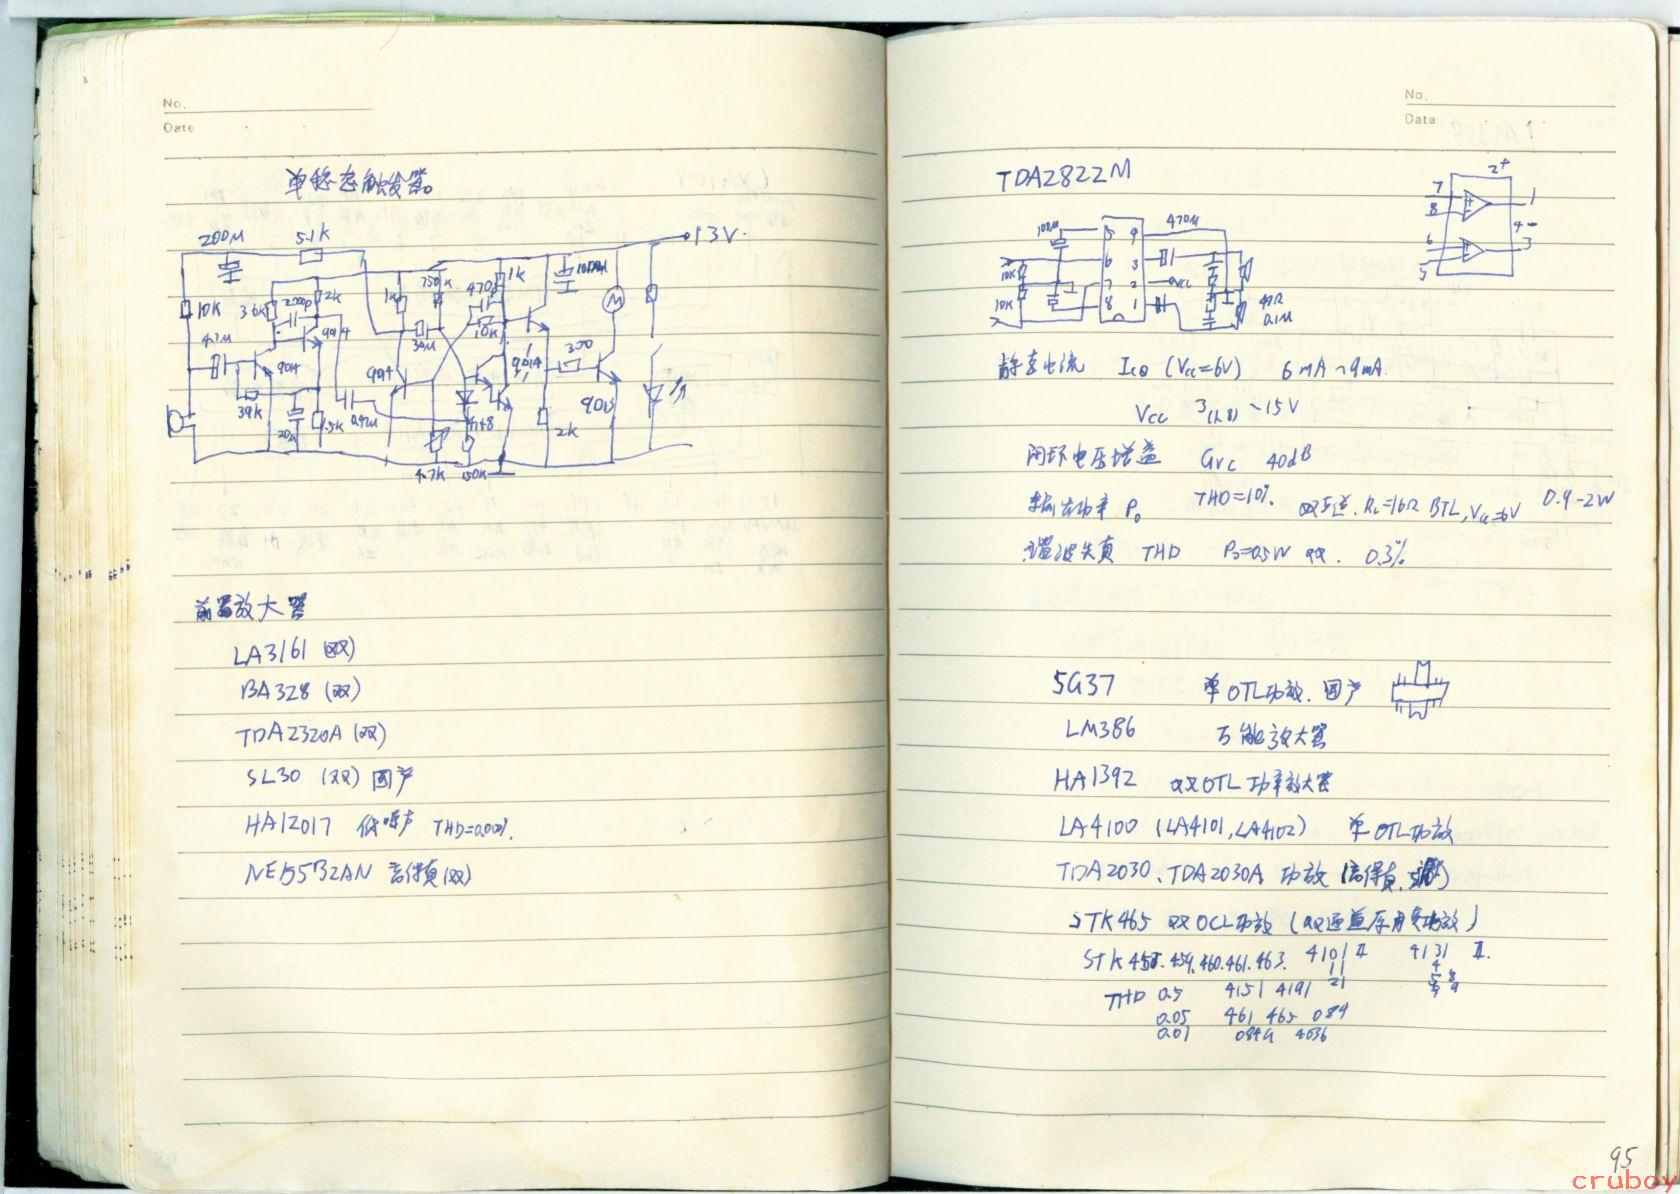 No.
Date
单稳态触发器。
200μ
5.1K
+3V.
10K
3.6K
2200p
2K
9014
1K
750K
470p
1K
1000μ
M
4.7μ
9014
30μ
10K
9014
300
9014
39K
20μ
1.5K
0.47μ
4148
2K
9013
4.7K
150K
前置放大器
LA3161 (双)
BA328 (双)
TDA2320A (双)
SL30 (双) 国产
HA12017 低噪声 THD=0.002%.
NE5532AN 高传真(双)
No.
Date
TDA2822M
2+
7
8
1
4-
6
5
3
100μ
5
4
470μ
10K
6
3
7
2
Vcc
10K
8
1
4.7Ω
0.1μ
静态电流 ICQ (Vcc=6V) 6mA~9mA.
Vcc 3(1.8)~15V
闭环电压增益 Gvc 40dB
输出功率 Po THD=10% 双声道. RL=16Ω BTL, Vcc=6V 0.9-2W
谐波失真 THD Po=0.5W 双. 0.3%
5G37 单OTL功放. 国产
LM386 万能放大器
HA1392 双OTL功率放大器
LA4100 (LA4101, LA4102) 单OTL功放
TDA2030、TDA2030A 功放
STK465 双OCL功放
STK 459.460.461.463. 4101 II 4131 II.
11
21
THD 0.5 4151 4191
0.05 461 465 084
0.07 084G 4036
95
cruboy